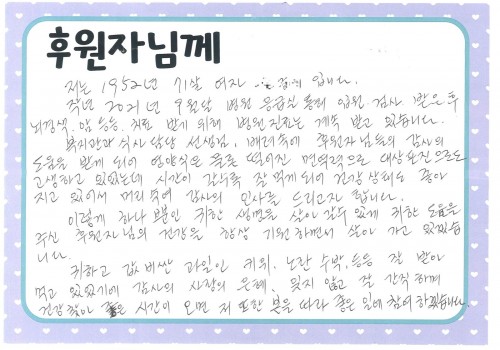 후원자님께
저는 1952년 71살 여자 입니다.
작년 2021년 9월달 병원 응급실 통해 입원 검사 받은 후
뇌경색, 암 등등. 치료 받기 위해 병원 진료는 계속 받고 있습니다.
복지관과 식사 담당 선생님, 배려속에 후원자님들의 감사의
도움을 받게 되어 영양식은 물론 떨어진 면역력으로 대상포진으로도
고생하고 있었는데 시간이 갈수록 잘 먹게되어 건강 상태도 좋아
지고 있어서 머리 숙여 감사의 인사를 드리고자 합니다.
이렇게 하나 뿐인 귀한 생명을 살아갈수 있게 귀한 도움을
주신 후원자님의 건강을 항상 기원하면서 살아 가고 있겠습
니다.
귀하고 값비싼 과일인 키위, 노란 수박, 등등 잘 받아
먹고 있었기에 감사의 사랑의 은혜, 잊지 않고 잘 간직하며
건강 찾아 좋은 시간이 오면 저 또한 본을 따라 좋은 일에 참여 하겠습니다